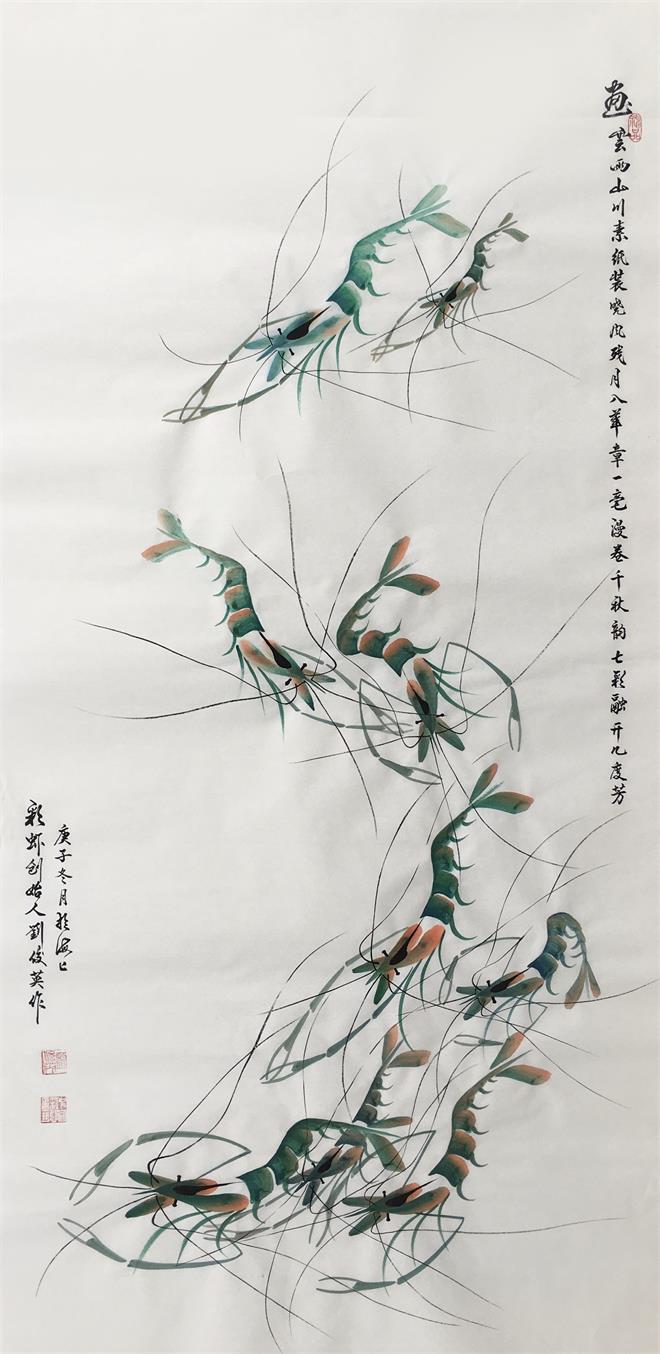 画云雨山川素纸装晓风残月入華章一毫漫卷千秋韵七彩融开几度芳
庚子冬月於海上
彩虾创始人劉俊英作